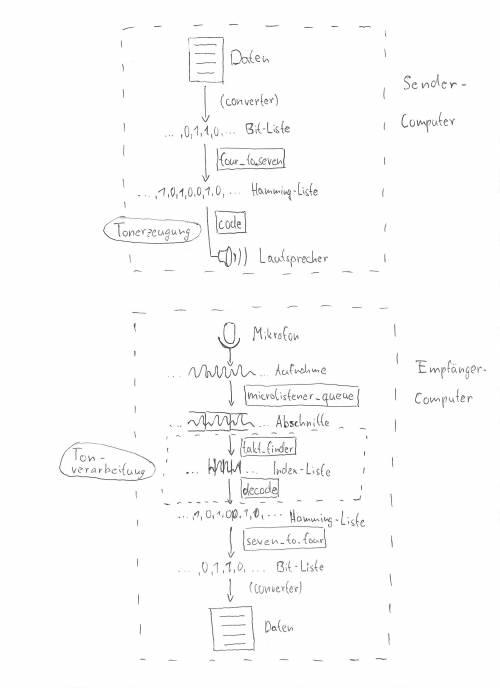 Daten
Sender-
(converter)
Computer
...,0,1,1,0,... Bit-Liste
four_to_seven
...,1,0,1,0,0,1,0,... Hamming-Liste
code
Tonerzeugung
Lautsprecher
Mikrofon
... ... Aufnahme
Empfänger-
Computer
microlistener_queue
... ... Abschnitte
takt_finder
Ton-
verarbeitung
... ... Index-Liste
decode
...,1,0,1,0,0,1,0,... Hamming-Liste
seven_to_four
...,0,1,1,0,... Bit-Liste
(converter)
Daten